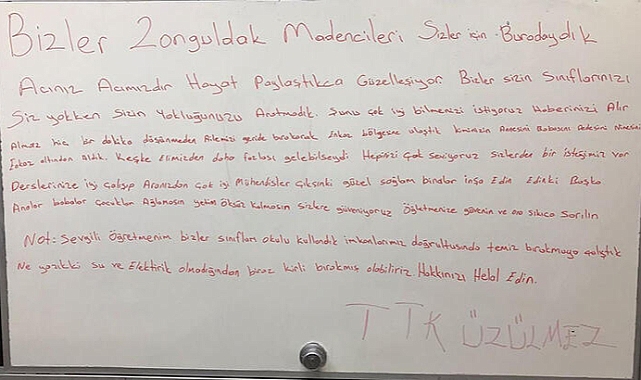 Bizler Zonguldak Madencileri Sizler için Buradaydık
Acınız Acımızdır Hayat Paylaştıkca Güzelleşiyor Bizler sizin Sınıflarınızı
Siz yokken Sizin Yokluğunuzu Aratmadık. Şunu çok iyi bilmenizi istiyoruz Haberinizi Alır
Almaz hiç bir dakika düşünmeden Ailemizi geride bırakarak Enkaz bölgesine ulaştık kiminizin Annesini Babasını Dedesini Ninesini
Enkaz altından Aldık. Keşke Elimizden daha fazlası gelebilseydi Hepinizi Çok seviyoruz sizlerden bir isteğimiz var
Derslerinize iyi çalışıp Aranızdan Çok iyi Mühendisler çıksınki güzel sağlam binalar inşa Edin Edinki Başka
Analar babalar çocuklar Ağlamasın yetim Öksüz kalmasın sizlere güveniyoruz Öğretmenize güvenin ve ona sıkıca Sarılın
Not: Sevgili Öğretmenim bizler sınıfları okulu kullandık imkanlarımız doğrultusunda temiz bırakmaya çalıştık
Ne yazıkki su ve Elektirik olmadığından biraz kirli bırakmış olabiliriz Hakkınızı Helal Edin.
TTK ÜZÜLMEZ